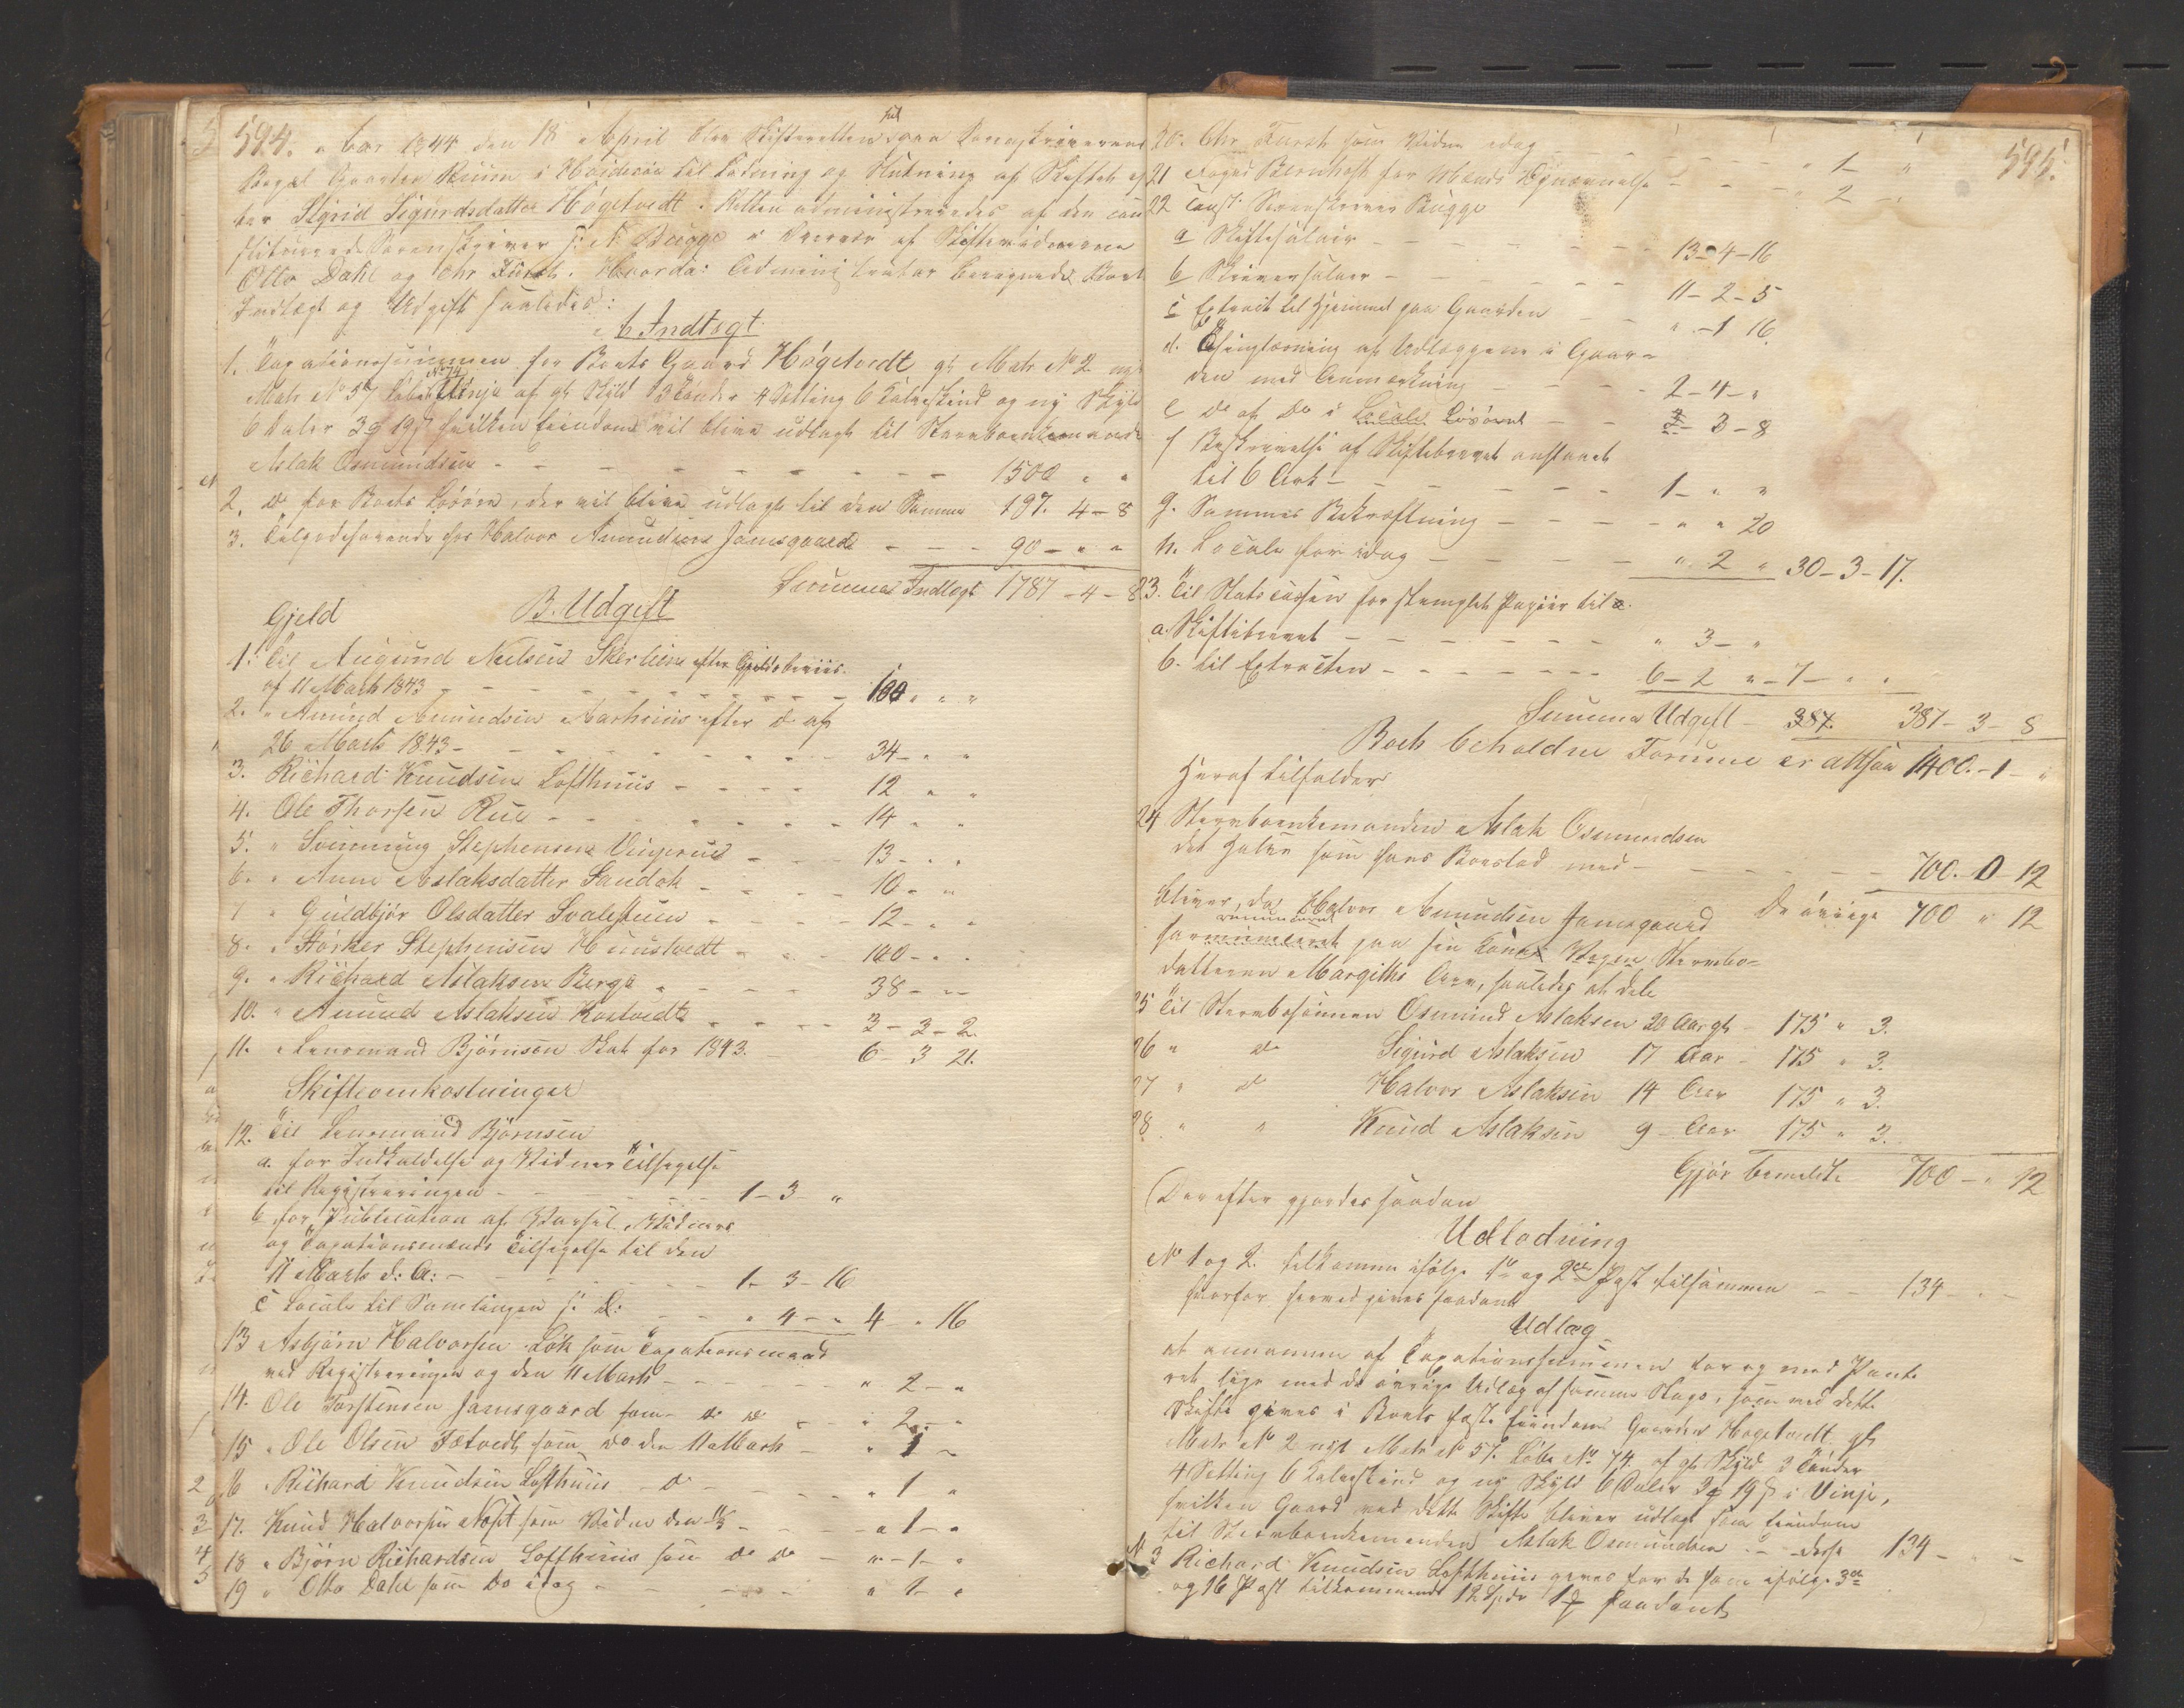 594.
Aar 1844 den 18 April blev Skifteretten sat paa Sorenskriverens
Bopæl Gaarden Ruum i Hvideseie til Ladning og Slutning af Skiftet ef
ter Sigrid Sigurdsdatter Högetvedt. Retten administreredes af den con
stituerede Sorenskriver S: N Bugge i Overvær af Skiftevidnerne
Otto Dahl og Chr Furst. Hvorda: Administrator beregnede Boets
Indtægt og Udgift saaledes:
A Indtægt.
1. Taxationssummen for Boets Gaard Högetvedt gl. Matr No 2 nyt
Matr No 57 Löbe No 74 Vinje af gl Skyld 3 Tönder 4 Setting 6 Kalveskind og ny Skyld
6 Daler 3 ort 19 ß hvilken Eiendom vil blive udlagt til Stervboenkemanden
Aslak Osmundsen - - - 1500 " "
2. do for Boets Lösöre, der vil blive udlagt til den Samme 197. 4 - 8
3. Tilgodehavende hos Halvor Amundsen Jamsgaard - - - 90 - " "
Summa Indtægt 1787 - 4 - 8
B. Udgift
Gjeld
1. Til Augund Nielsen Skerlien efter Gjeldsbeviis
af 11 Marts 1843 - - - 100 " "
2. " Amund Amundsen Aarhuus efter do af
26 Marts 1843 - - - 34 - " "
3. Richard Knudsen Lofthuus - - - 12 " "
4. Ole Thorsen Rue - - - 14 " "
5. " Svinung Stephensen Vingerud - - - 13 - " "
6. " Anne Aslaksdatter Sandok - - - 10 - "
7 " Guldbjör Olsdatter Svalestuen - - - 12 - " "
8. " Störker Stephensen Huustvedt - - - 100 - " "
9. " Richard Aslaksen Berge - - - 38 - " -
10. " Amund Aslaksen Kostvedt - - - 3 - 3 - 2
11. " Lensmand Björnsen Skat for 1843. - 6 - 3 21.
Skifteomkostninger
12. Til Lensmand Björnsen
a. for Indkaldelse og Vidners Tilsigelse
til Registreringen - - - 1 - 3 "
b for Publication af Varsel, Vidners
og Taxationsmænds Tilsigelse til den
11 Marts d: A: - - - 1 - 3 - 16
c Locale til Samlingen s: D: - - " 4 - " 4 - " 16
13 Asbjörn Halvorsen Lök som Taxationsmand
ved Registreringen og den 11 Marts - - - " 2 - "
14. Ole Torstensen Jamsgaard som do do - - " 2 - "
15 " Ole Olsen Tætvedt som do den 11 Marts - " 1 -
16 " Richard Knudsen Lofthuus - do - - - " 1 "
17. Knud Halvorsen Næsit som Vidne den 11/3 - - " 1 - "
18 " Björn Richardsen Lofthuus som do do - " - 1 - "
19 " Otto Dahl som do idag - - - " 1 - "
595.
20. Chr Furst som Vidne idag - - - " 1 - "
21 Foged Bernhoft for Mænds Opnævnelse - - - " 2 "
22 Const: Sorenskriver Bugge
a Skiftesalair - - - 13 - 4 - 16
b Skriversalair - - - 11 - 2 - 5
c Extract til Hjemmel paa Gaarden - - " - 1 16
d. Thinglæsning af Udlæggene i Gaar-
den med Anmærkning - - - 2 - 4 - "
e do af do i Locale Lösöret - - " 3 - 8
f Beskrivelse af Skiftebrevet anslaaet
til 6 Ark - - - 1 - " "
g. Sammes Bekræftning - - - " " 20
h. Locale for idag - - - " 2 " 30 - 3 - 17.
23. Til Statscassen for stemplet Papiir til
a. Skiftebrevet - - - " 3 - "
b. til Extracten - - - 6 - 2 " - 7 - " "
Summa Udgift - 387. 387 - 3 - 8
Boets beholdne Formue er altsaa 1400. - 1 - "
Heraf tilfalder
24 Stervboenkemanden Aslak Osmundsen
det Halve som hans Boeslod med - - - 700. - 0 - 12
De övrige 700 " 12
bliver, da Halvor Amundsen Jamsgaard
har renunceret paa sin Kones Vegne Stervbo-
datteren Margiths Arv, saaledes at dele
25 Til Stervbosönnen Osmund Aslaksen 20 Aar gl - 175 " 3.
26 " do Sigurd Aslaksen 17 Aar - 175 " 3.
27 " do Halvor Aslaksen 14 Aar 175 " 3.
28 " " Knud Aslaksen 9 - Aar 175 " 3.
Gjör bemeldte 700 - " 12
Derefter gjordes saadan
Udlodning
No 1 og 2. tilkommer ifölge 1ste og 2den Post tilsammen - - 134 - " -
hvorfor hermed gives saadant
Udlæg
at annamme af Taxationssummen for og med Pante
ret lige med de övrige Udlæg af samme Slags, som ved dette
Skifte gives i Boets faste Eiendom Gaarden Högetvedt gl
Matr No 2 nyt Matr No 57. Löbe No 74. af gl Skyld 3 Tönder
4 Setting 6 Kalveskind og ny Skyld 6 Daler 3 ort 19 ß i Vinje,
hvilken Gaard ved dette Skifte bliver udlagt som Eiendom
til Stervboenkemanden Aslak Osmundsen - - disse 134 - " -
No 3 Richard Knudsen Lofthuus gives for de ham ifölge 3die
og 16 Post tilkommende 12 Spd 1 ort saadant